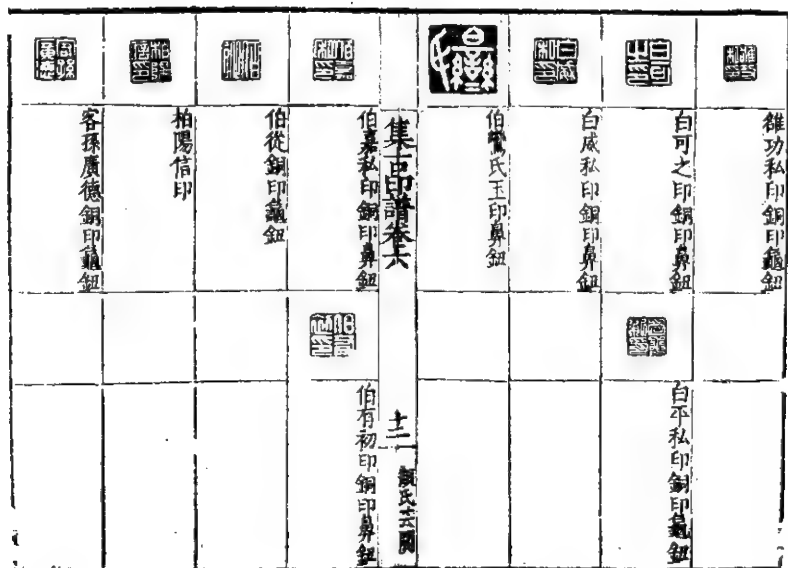 雒功私印銅印龜鈕
白可之印銅印鼻鈕
白平私印銅印龜鈕
白威私印銅印鼻鈕
伯鸞氏玉印鼻鈕
集古印譜卷六
十二
顧氏芸閣
伯嘉私印銅印鼻鈕
伯有初印銅印鼻鈕
伯從銅印龜鈕
柏陽信印
客孫廣德銅印龜鈕